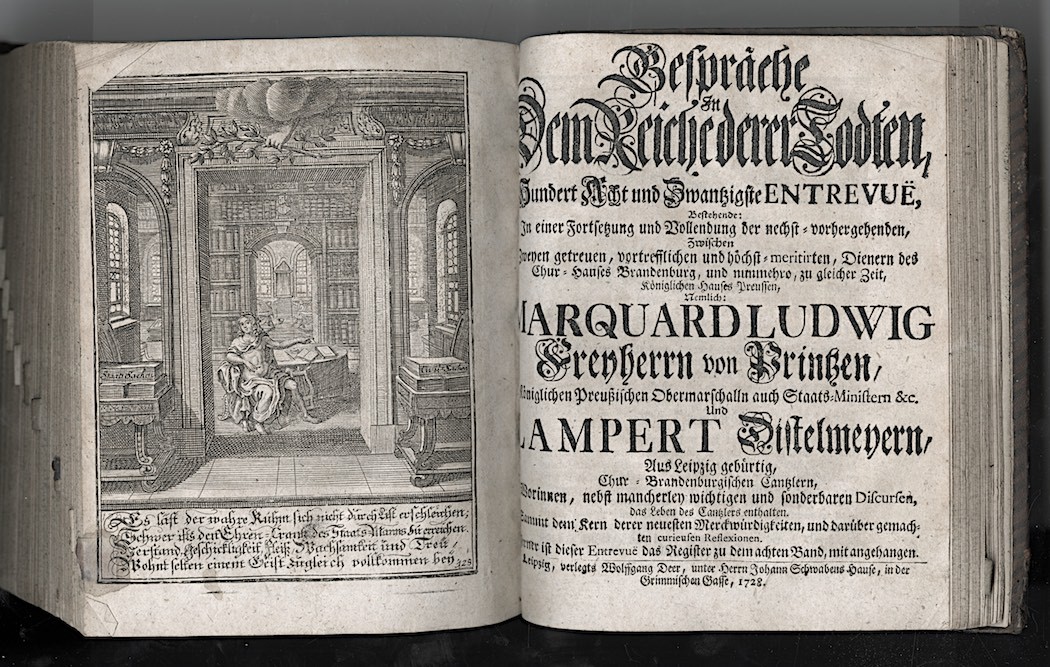 Staats Sachen
Es läst der wahre Ruhm sich nicht durch List erschleichen;
Schwer ists den Ehren-Crantz des Staats-Manns zu erreichen.
Verstand, Geschickligkeit, Fleiß, Wachsamkeit und Treu,
Wohnt selten einem Geist zugleich vollkommen bey.
Gespräche
In
Dem Reiche derer Todten,
Hundert Acht und Zwantzigste ENTREVUË,
Bestehende:
In einer Fortsetzung und Vollendung der nechst-vorhergehenden,
Zwischen
Zweyen getreuen, vortrefflichen und höchst-meritirten, Dienern des
Chur-Hauses Brandenburg, und nunmehro, zu gleicher Zeit,
Königlichen Hauses Preussen,
Nemlich:
MARQUARD LUDWIG
Freyherrn von Printzen,
Königlichen Preußischen Obermarschalln auch Staats-Ministern &c.
Und
LAMPERT Distelmeyern,
Aus Leipzig gebürtig,
Chur-Brandenburgischen Cantzlern,
Worinnen, nebst mancherley wichtigen und sonderbaren Discursen,
das Leben des Cantzlers enthalten.
Sammt dem Kern derer neuesten Merckwürdigkeiten, und darüber gemach-
ten curieusen Reflexionen.
Ferner ist dieser Entrevuë das Register zu dem achten Band, mit angehangen.
Leipzig, verlegts Wolffgang Deer, unter Herrn Johann Schwabens Hause, in der
Grimmischen Gasse, 1728.